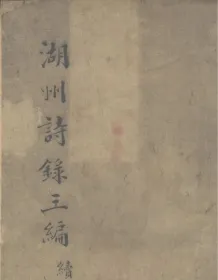 湖州詩錄三編
續